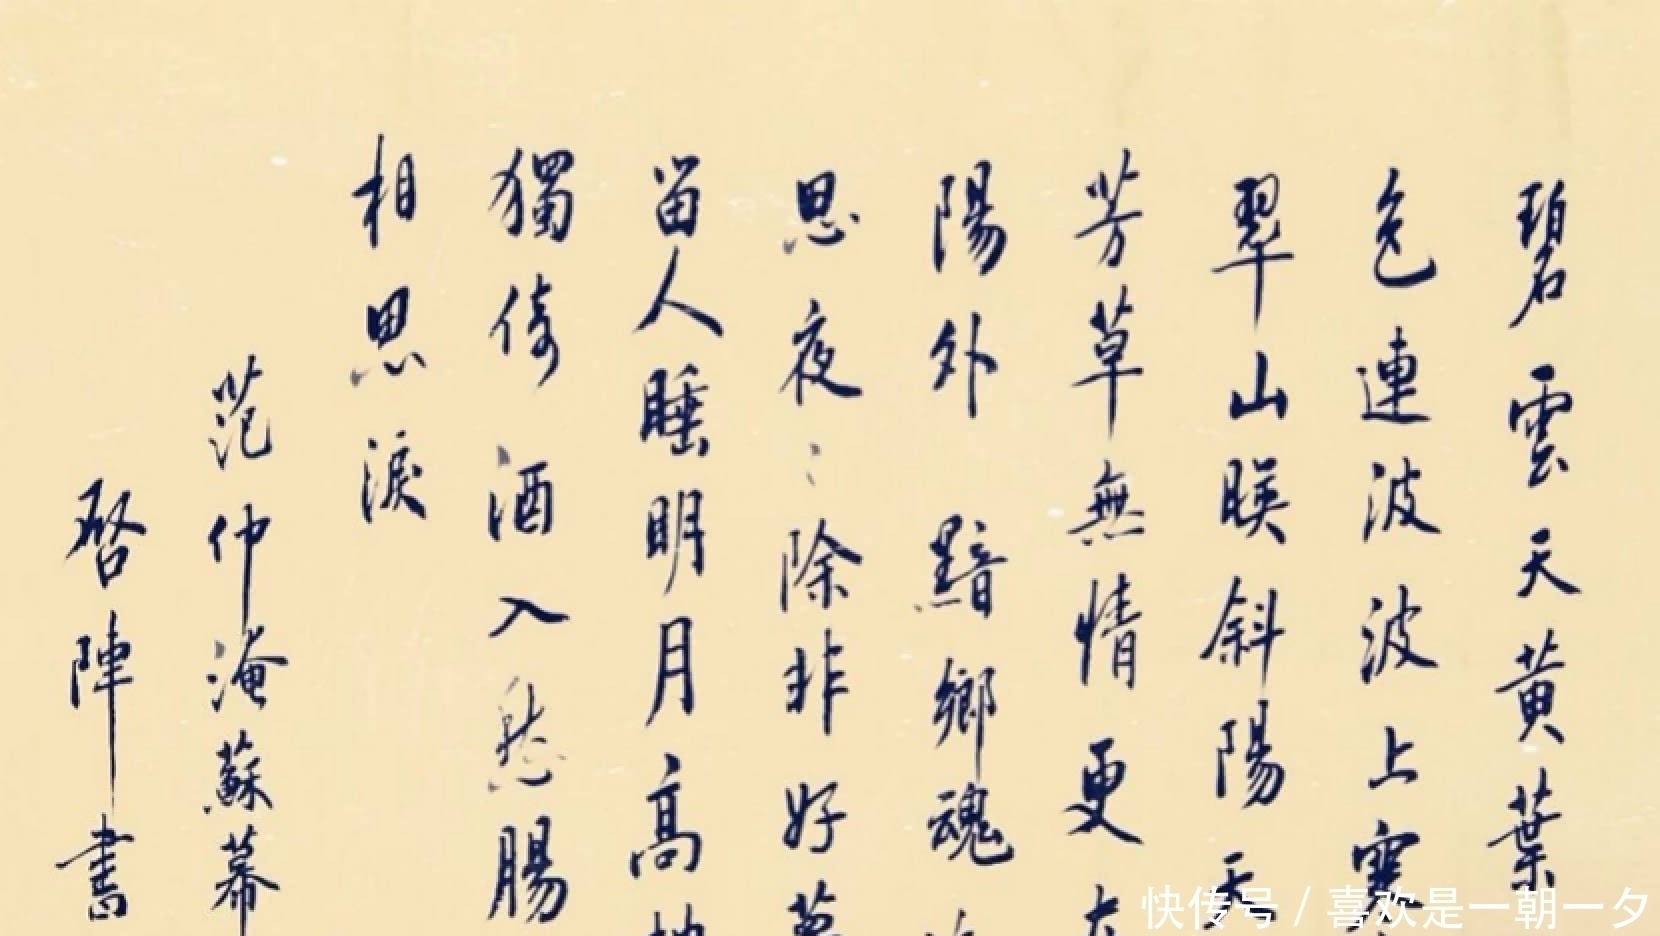 碧雲天黄葉
色連波波上寒
翠山映斜陽天
芳草無情更
陽外黯鄉魂
思夜〻除非好夢
留人睡明月高
獨倚酒入愁腸
相思淚
范仲淹蘇幕
啓陣書
快传号/喜欢是一朝一夕